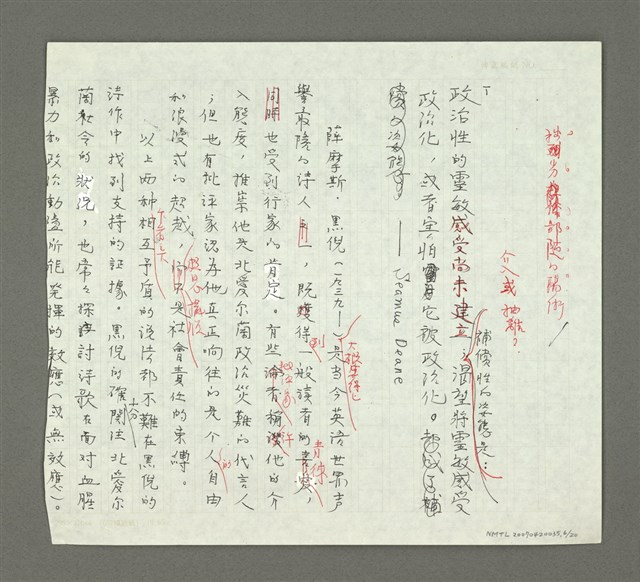 介入或抽離？
補償性的姿態是：
政治性的靈敏感受尚未建立；渴望將靈敏感受
政治化，或者害怕它被政治化。
——Seamus Deane
薛摩斯·黑倪（一九三九—）是當今英語世界聲
譽最隆的詩人之一，既獲得一般讀者的喜愛，
同時也受到行家的肯定。有些論者稱讚他的介
入態度，推崇他是北愛爾蘭政治災難的代言人
；但也有批評家認為他真正嚮往的是個人自由
和浪漫式的超越，而不是社會責任的束縛。
以上兩種相互矛盾的說法都不難在黑倪的
詩作中找到支持的証據。黑倪的強關注北愛爾
蘭社會的狀況，也常々探討詩歌在面對血腥
暴力和政治動盪所能發揮的效應（或無效應）。
NMTL 20090420035, 6/20